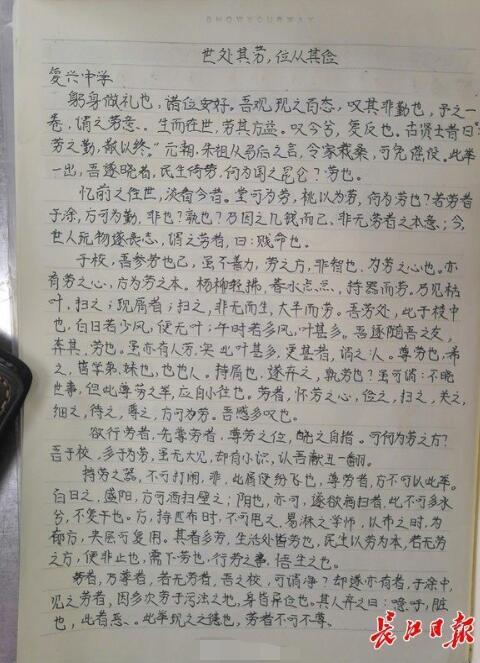 SHOWYOURWAY
世处其劳，位从其俭
复兴中学
躬身做礼也，诸位安好。吾观，现之百态，叹其非勤也，予之一
卷，谓之劳意、生而在世，劳其方益。叹今兮，复反也。古贤士昔曰"
劳之勤，献以终。"元朝，朱祖从马后之言，令家栽桑，可免徭役。此举
一出，吾遂晓者，民生倚劳，何为国之昆仑？劳也。
忆前之往世，淡看今昔。堂可为劳，桃以为劳，何为劳也？若劳者
于涂，方可为勤，非也？孰也？乃因之几钱而已、非无劳者之本意；今
世人玩物遂丧志，谓之劳者，曰：贱命也。
于校，吾参劳也已，虽不善力，劳之方，非智也、为劳之心也。亦
有劳之心，方为劳之本。杨柳轻拂，春水点点、持器而劳。乃见枯
叶，扫之；现屑者；扫之，非无而生，大半而劳。吾劳处，此于校中
也，白日若少风，便无叶；午时若多风，叶甚多。吾遂随吾之友，
奔其，劳也。虽亦有人劳，实此叶甚多，更甚者，谓之：人。尊劳也，希
之，皆学弟、妹也，也也人。持屑也，遂弃之，孰劳也？虽可谓：不晓
世事，但此尊劳之举，应自小往也。劳者，怀劳之心，俭之，扫之，关之，
细之，待之，尊之，方可为劳。吾感多叹也。
欲行劳者，先尊劳者，尊劳之位，晓之自指。可何为劳之方？
吾于校，多于为劳，虽无大见，却有小识，认吾献丑一翻。
持劳之器，不可打闹，非，此屑便纷飞也，尊劳者，方不可以此举。
白日之，盛阳，方可洒扫壁之；阴也，亦可，遂欲满扫者，此不可多水
兮，不复干也。方，持匹布时，不可甩之，易淋之学师，以布之时，为
郁方，夹层可复用。其者多劳，生活处皆劳也，民生以劳为本，若无劳
之方，便非止也，需下劳也，行劳之事，悟生之也。
劳者，万尊者，若无劳者，吾之校，可谓净？却遂亦有者，于涂中，
见之劳者，因多次劳于污浊之地，身皆异位也。其人弃之曰：噫吁，脏
也，此者恶、。此举现之之徒也，劳者不可不尊。
长江日报